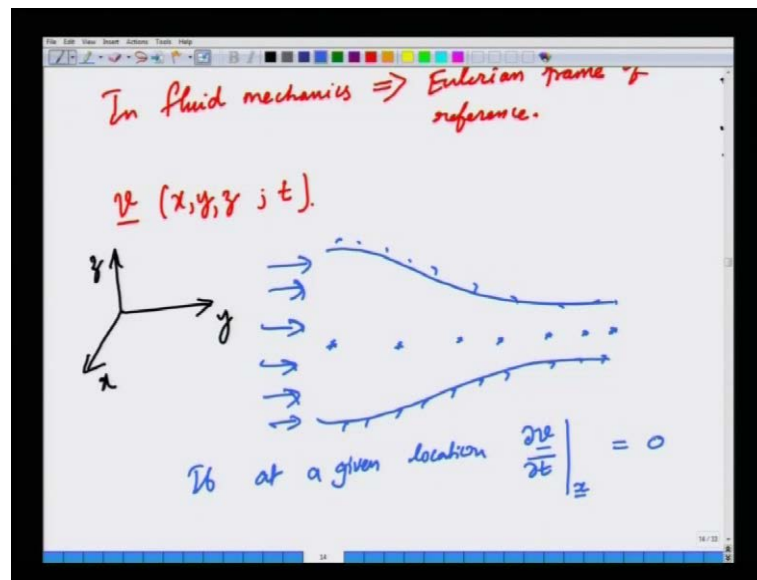 File Edit View Insert Actions Tools Help
In fluid mechanics => Eulerian frame of
reference.
v (x,y,z ; t).
z
y
x
If at a given location ∂v/∂t |x = 0
14